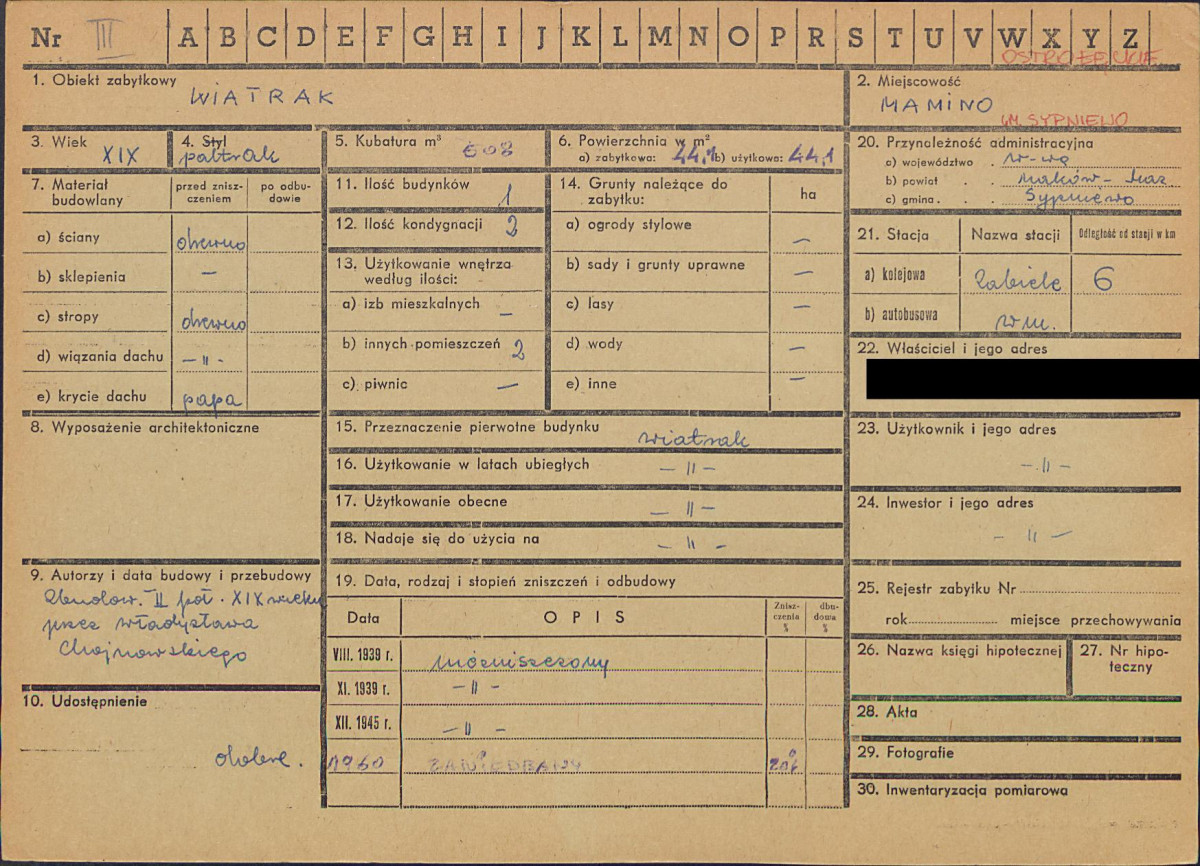 Nr III A B C D E F G H I J K L M N O P R S T U V W X Y Z
OSTROŁĘCKIE
1. Obiekt zabytkowy
WIATRAK
2. Miejscowość
MAMINO
GM. SYPNIEWO
3. Wiek
XIX
4. Styl
5. Kubatura m³
6. Powierzchnia w m²
a) zabytkowa: 44,1 b) użytkowa: 44,1
7. Materiał budowlany
przed znisz-
czeniem
po odbu-
dowie
a) ściany drewno
b) sklepienia —
c) stropy drewno
d) wiązania dachu — " —
e) krycie dachu papa
8. Wyposażenie architektoniczne
9. Autorzy i data budowy i przebudowy
Zbudow. II poł. XIX wieku
przez Władysława
Chojnowskiego
10. Udostępnienie
dobre.
11. Ilość budynków 1
12. Ilość kondygnacji 2
13. Użytkowanie wnętrza
według ilości:
a) izb mieszkalnych —
b) innych pomieszczeń 2
c) piwnic —
14. Grunty należące do
zabytku:
ha
a) ogrody stylowe —
b) sady i grunty uprawne —
c) lasy —
d) wody —
e) inne —
15. Przeznaczenie pierwotne budynku wiatrak
16. Użytkowanie w latach ubiegłych — " —
17. Użytkowanie obecne — " —
18. Nadaje się do użycia na — " —
19. Data, rodzaj i stopień zniszczeń i odbudowy
Data
OPIS
Znisz-
czenia
%
dbu-
dowa
%
VIII. 1939 r. niezniszczony
XI. 1939 r. — " —
XII. 1945 r. — " —
1960 ZANIEDBANY 20%
20. Przynoleżność administracyjna
a) województwo . W-wa
b) powiat . . Maków-Maz.
c) gmina . . Sypniewo
21. Stacja
Nazwa stacji
Odległość od stacji w km
a) kolejowa Zabiele 6
b) autobusowa w m.
22. Właściciel i jego adres
23. Użytkownik i jego adres
— " —
24. Inwestor i jego adres
— " —
25. Rejestr zabytku Nr
rok miejsce przechowywania
26. Nazwa księgi hipotecznej
27. Nr hipo-
teczny
28. Akta
29. Fotografie
30. Inwentaryzacja pomiarowa